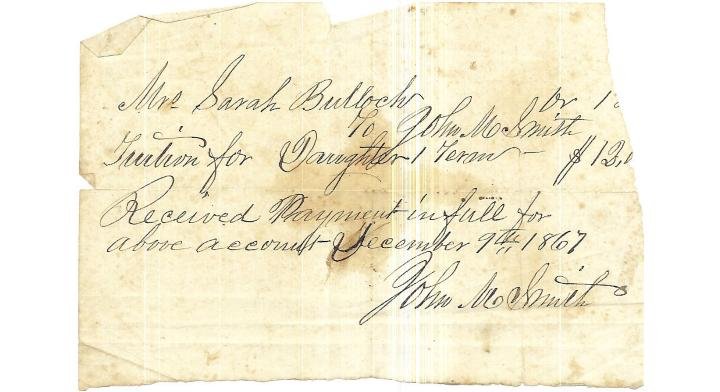 Mrs Sarah Bulloch Dr
To John M Smith
Tuition for Daughter 1 Term - $12.0
Received Payment in full for
above account December 9th, 1867
John M Smith